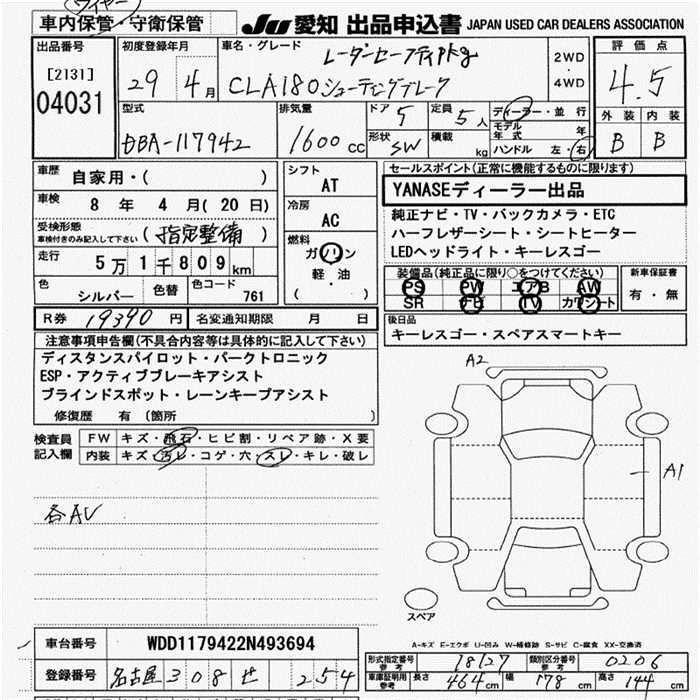 ワイヤー
車内保管・守衛保管
JU 愛知 出品申込書 JAPAN USED CAR DEALERS ASSOCIATION
出品番号
[2131]
04031
初度登録年月
29年4月
車名・グレード
レーダーセーフティpkg
CLA180シューティングブレーク
2WD
・
4WD
評価点
4.5
外装 内装
B B
型式
DBA-117942
排気量
1600 cc
ドア 5
形状 SW
定員 5人
積載 kg
ディーラー・並行
モデル年式 年
ハンドル 左・右
車歴 自家用・( )
車検 8年 4月(20日)
受検形態
車検付きのみ記入して下さい (指定整備)
走行 5万1千809km
色 シルバー 色替 色コード 761
シフト AT
冷房 AC
燃料
ガソリン
軽・油
( )
セールスポイント(正常に機能するものに限ります)
YANASEディーラー出品
純正ナビ・TV・バックカメラ・ETC
ハーフレザーシート・シートヒーター
LEDヘッドライト・キーレスゴー
装備品(純正品に限り○をつけてください)
PS PW エアB AW
SR ナビ TV カワシート
新車保証書
有・無
R券 19390円 名変通知期限 月 日
後日品
キーレスゴー・スペアスマートキー
注意事項申告欄(不具合内容等は具体的に記入して下さい)
ディスタンスパイロット・パークトロニック
ESP・アクティブブレーキアシスト
ブラインドスポット・レーンキープアシスト
修復歴 有 (箇所 )
検査員記入欄
FW キズ・飛石・ヒビ割・リペア跡・X要
内装 キズ・汚レ・コゲ・穴・スレ・キレ・破レ
各AV
A2
A1
スペア
A-キズ E-エクボ U-凹み W-補修跡 S-サビ C-腐食 XX-交換済
車台番号 WDD1179422N493694
登録番号 名古屋 308 せ 254
形式指定番号 参考 18127 類別区分番号 参考 0206
車庫証明用参考 長さ 464cm 幅 178cm 高さ 144cm